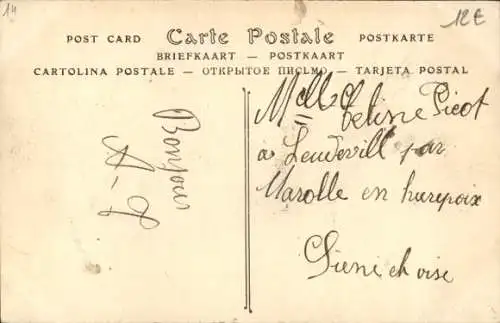 14
12€
POST CARD Carte Postale POSTKARTE
BRIEFKAART — POSTKAART
CARTOLINA POSTALE — ОТКРЫТОЕ ПИСЬМО — TARJETA POSTAL
Bonjour
A-J
Melle Celine Picot
a Leudevill par
Marolle en hurepoix
Siene et oise